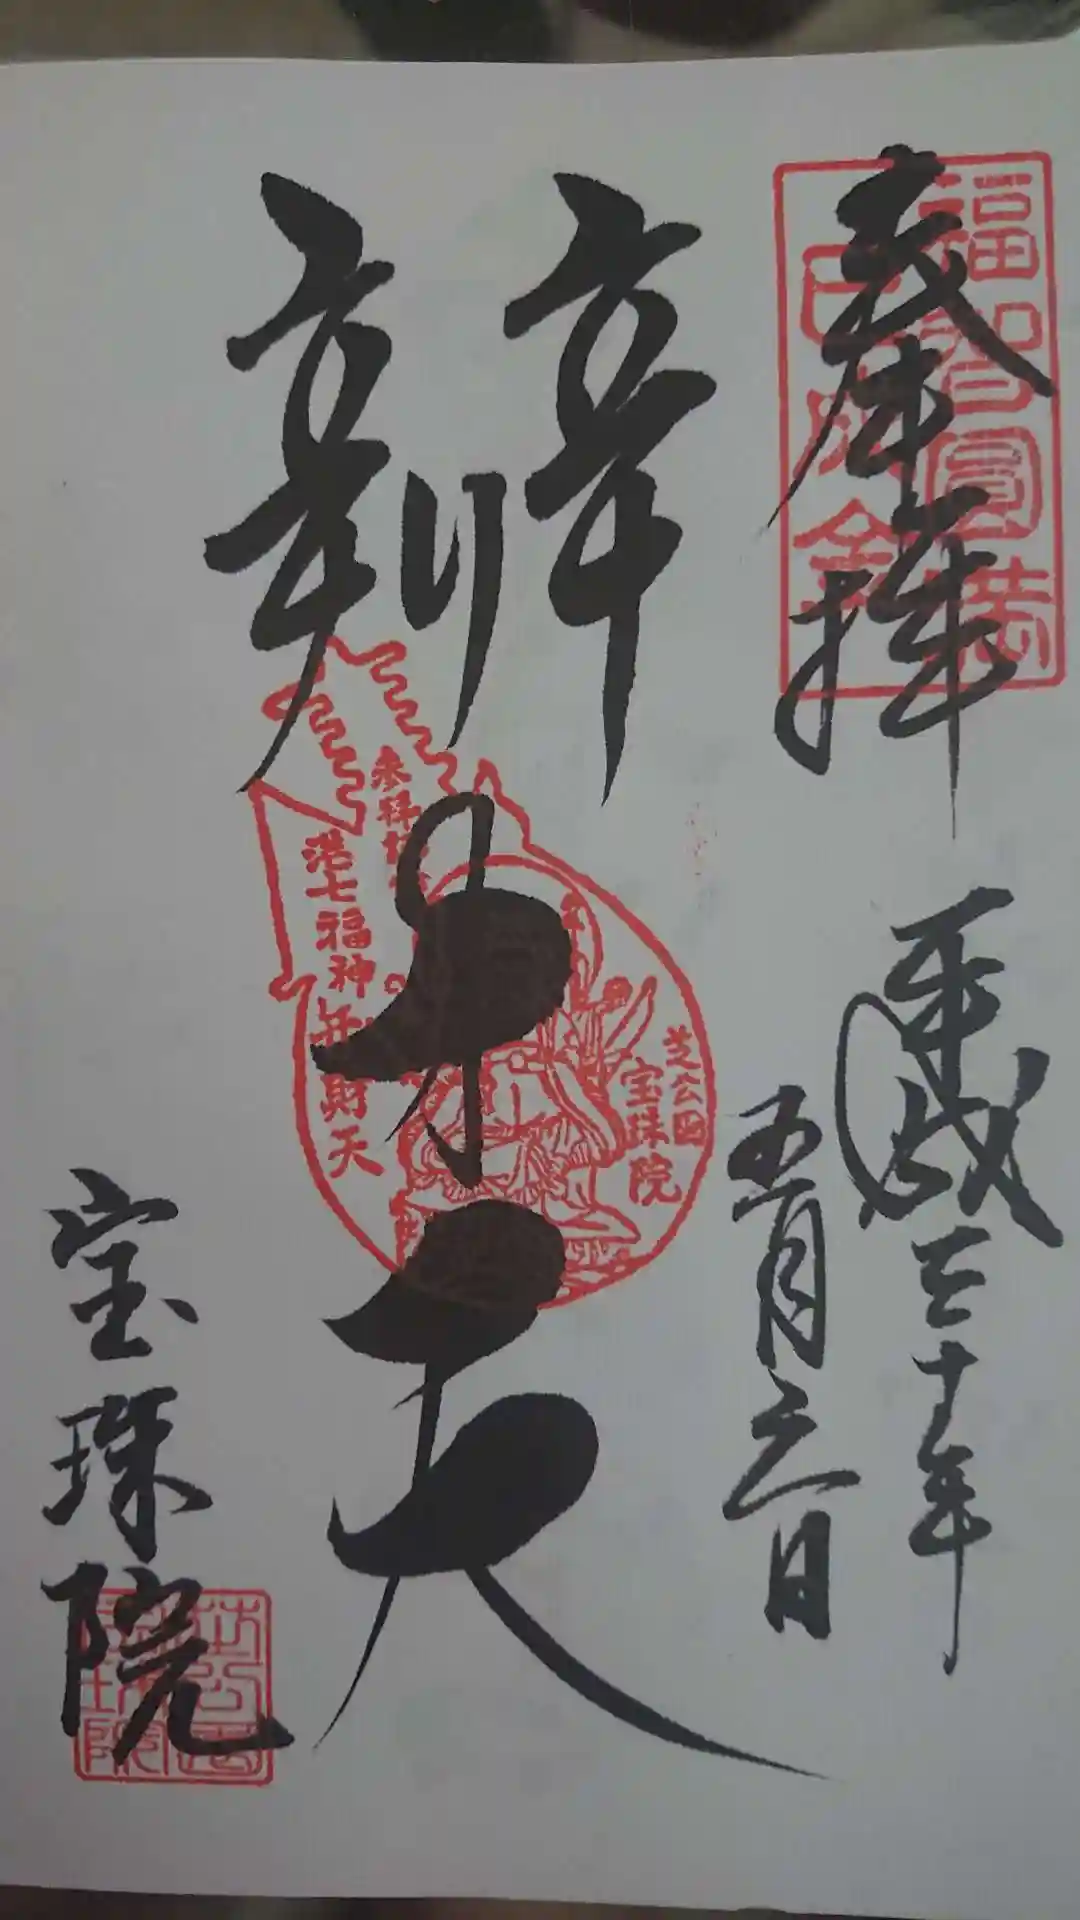 奉拝
平成三十年
五月三日
辨才天
宝珠院
福智圓満
参拝
港七福神
弁財天
芝公園
宝珠院